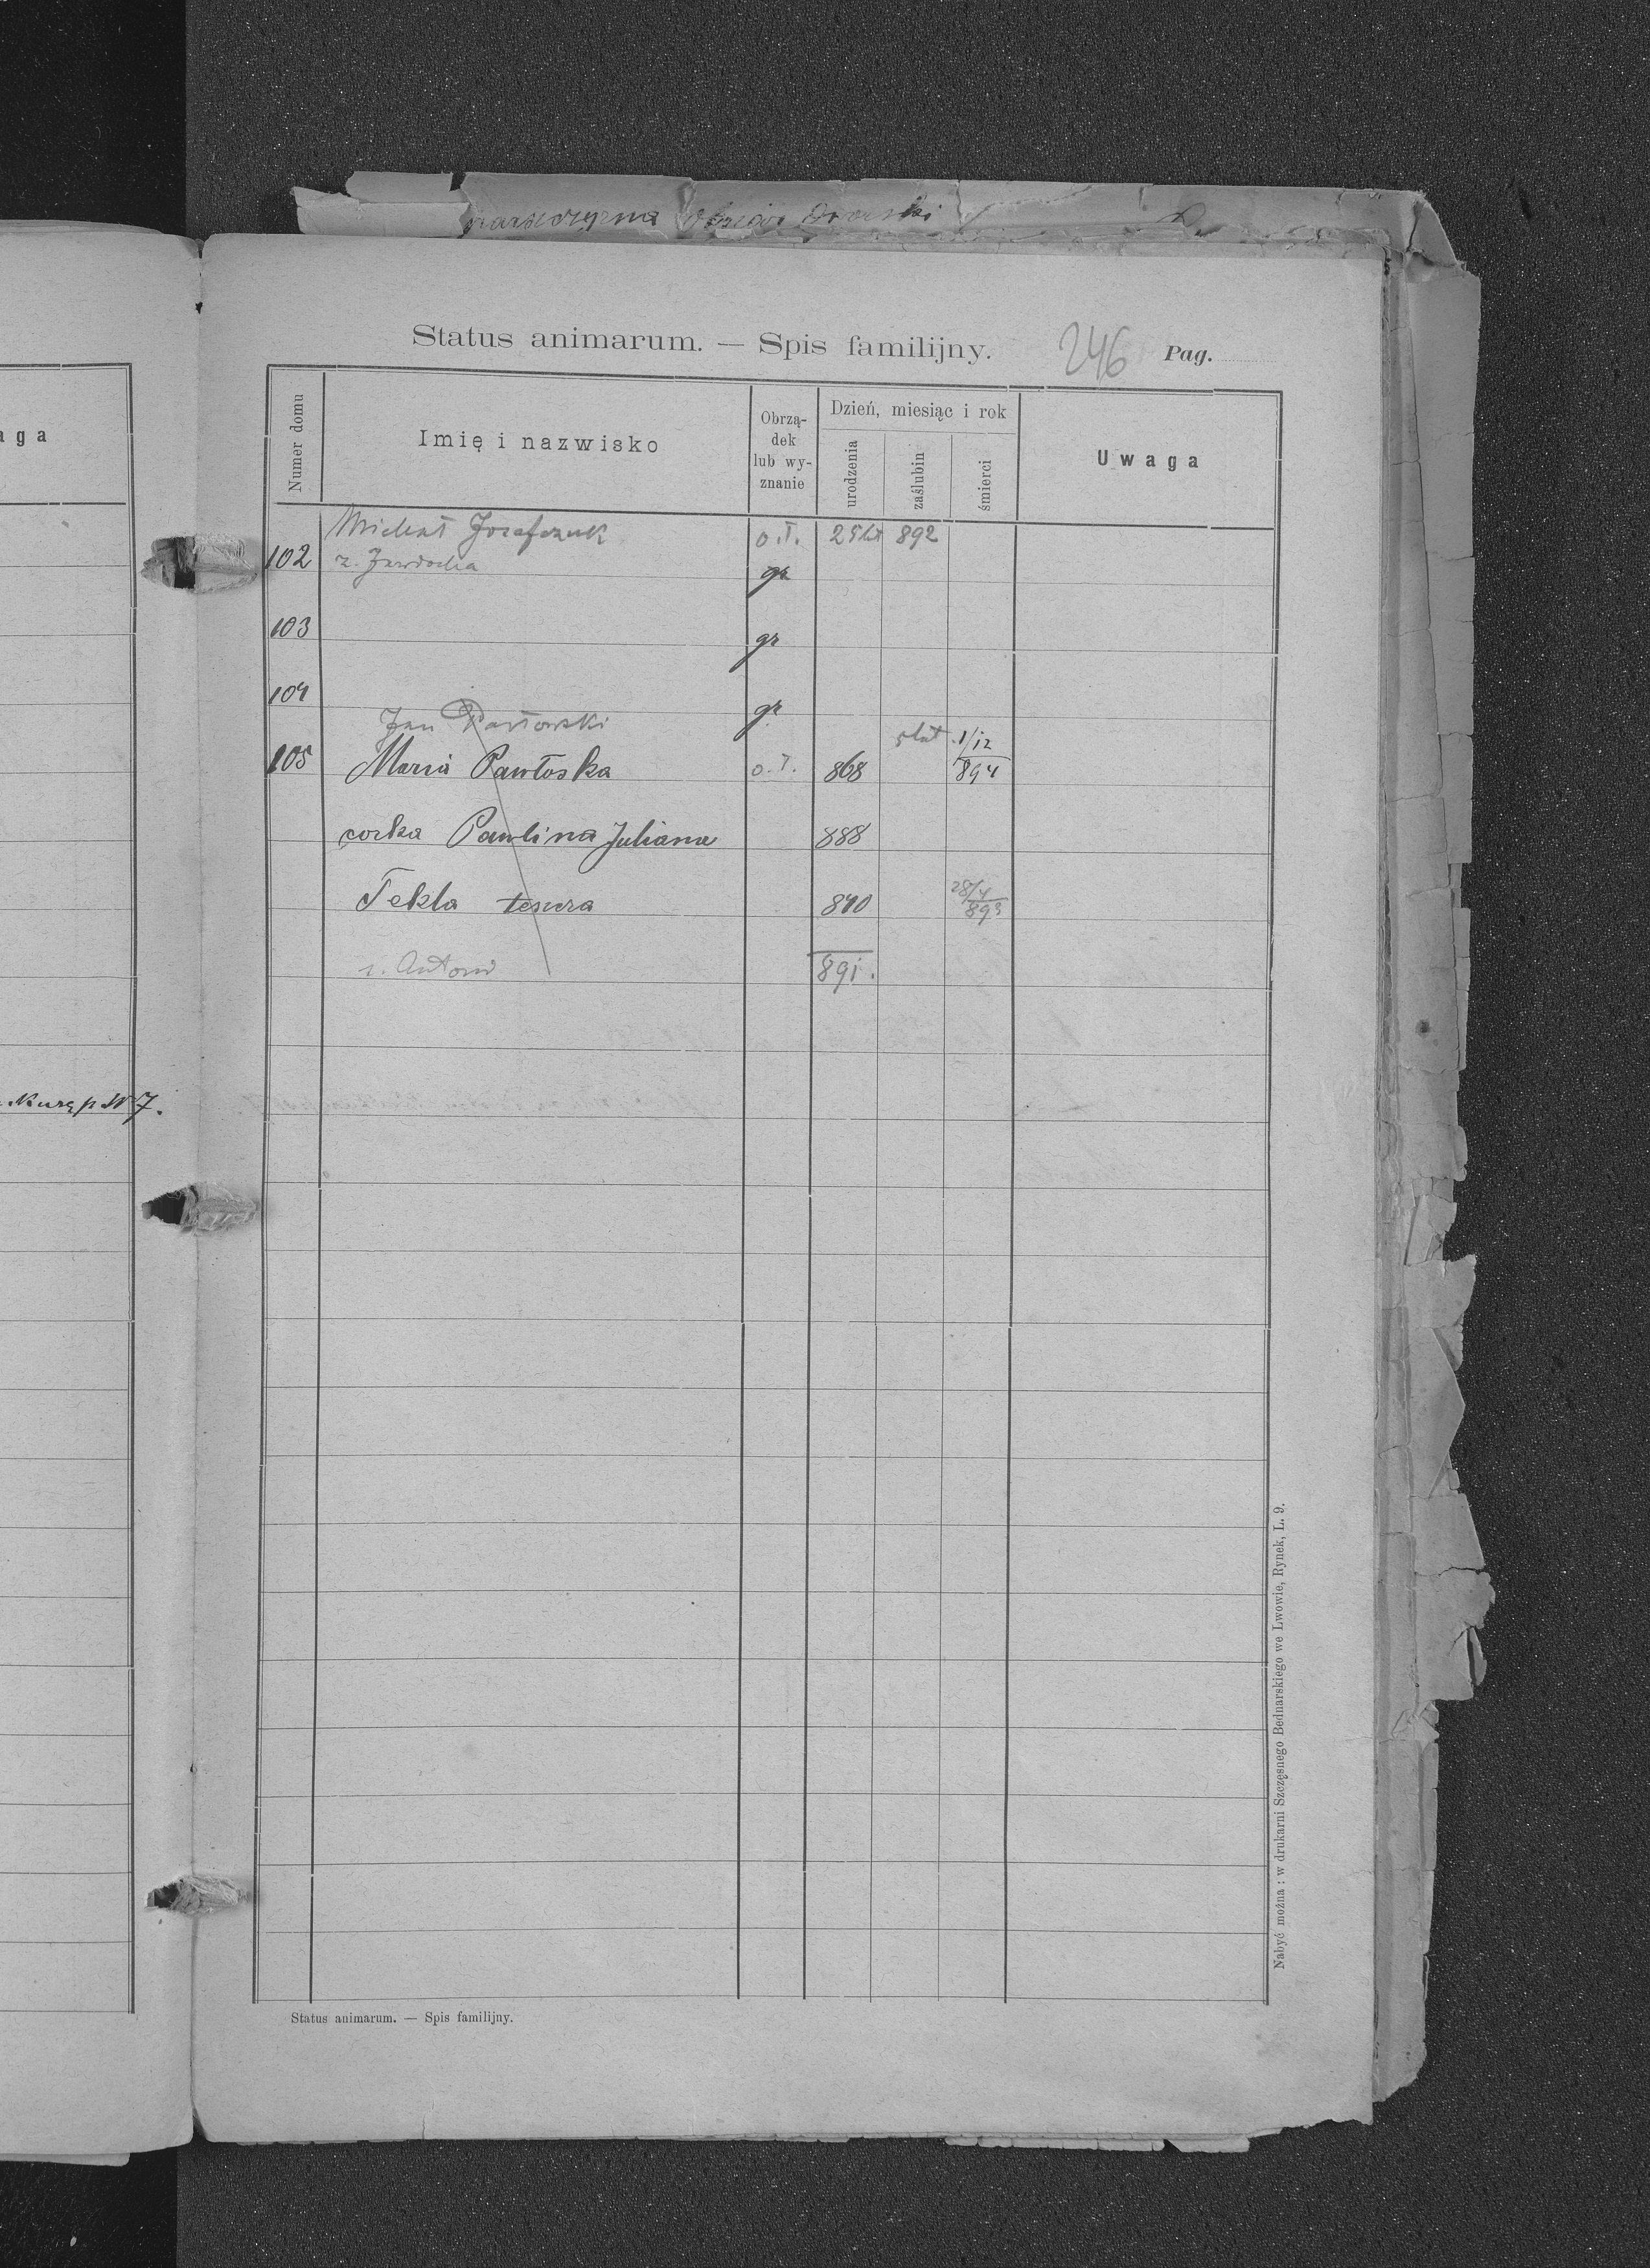 Status animarum. — Spis familijny.
246
Pag.
aga
Numer domu
Imię i nazwisko
Obrzą-
dek
lub wy-
znanie
Dzień, miesiąc i rok
urodzenia
zaślubin
śmierci
Uwaga
Michał Jozafczuk o.ł. 25 lat 892
102 ż. Jewdocha gr
103 gr
104 gr
Jan Pawłowski
5 lat 1/12
105 Maria Pawłoska o.ł. 868 894
corka Paulina Juliana 888
28/4
Tekla 890 893
s. Antoni 891.
N 7.
Nabyć można: w drukarni Szczęsnego Bednarskiego we Lwowie, Rynek, L. 9.
Status animarum. — Spis familijny.